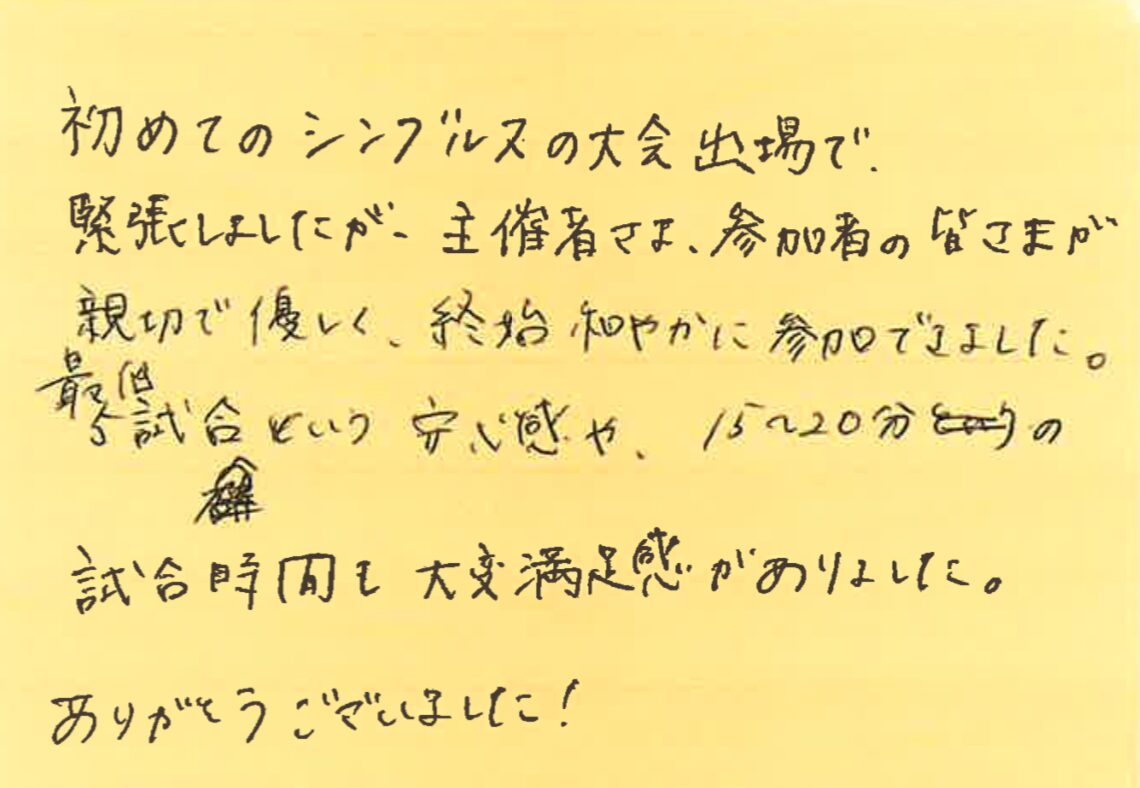 初めてのシングルスの大会出場で、
緊張しましたが、主催者さま、参加者の皆さまが
親切で優しく、終始和やかに参加できました。
最低
5試合という安心感や、15〜20分の
試合時間も大変満足感がありました。
ありがとうございました！